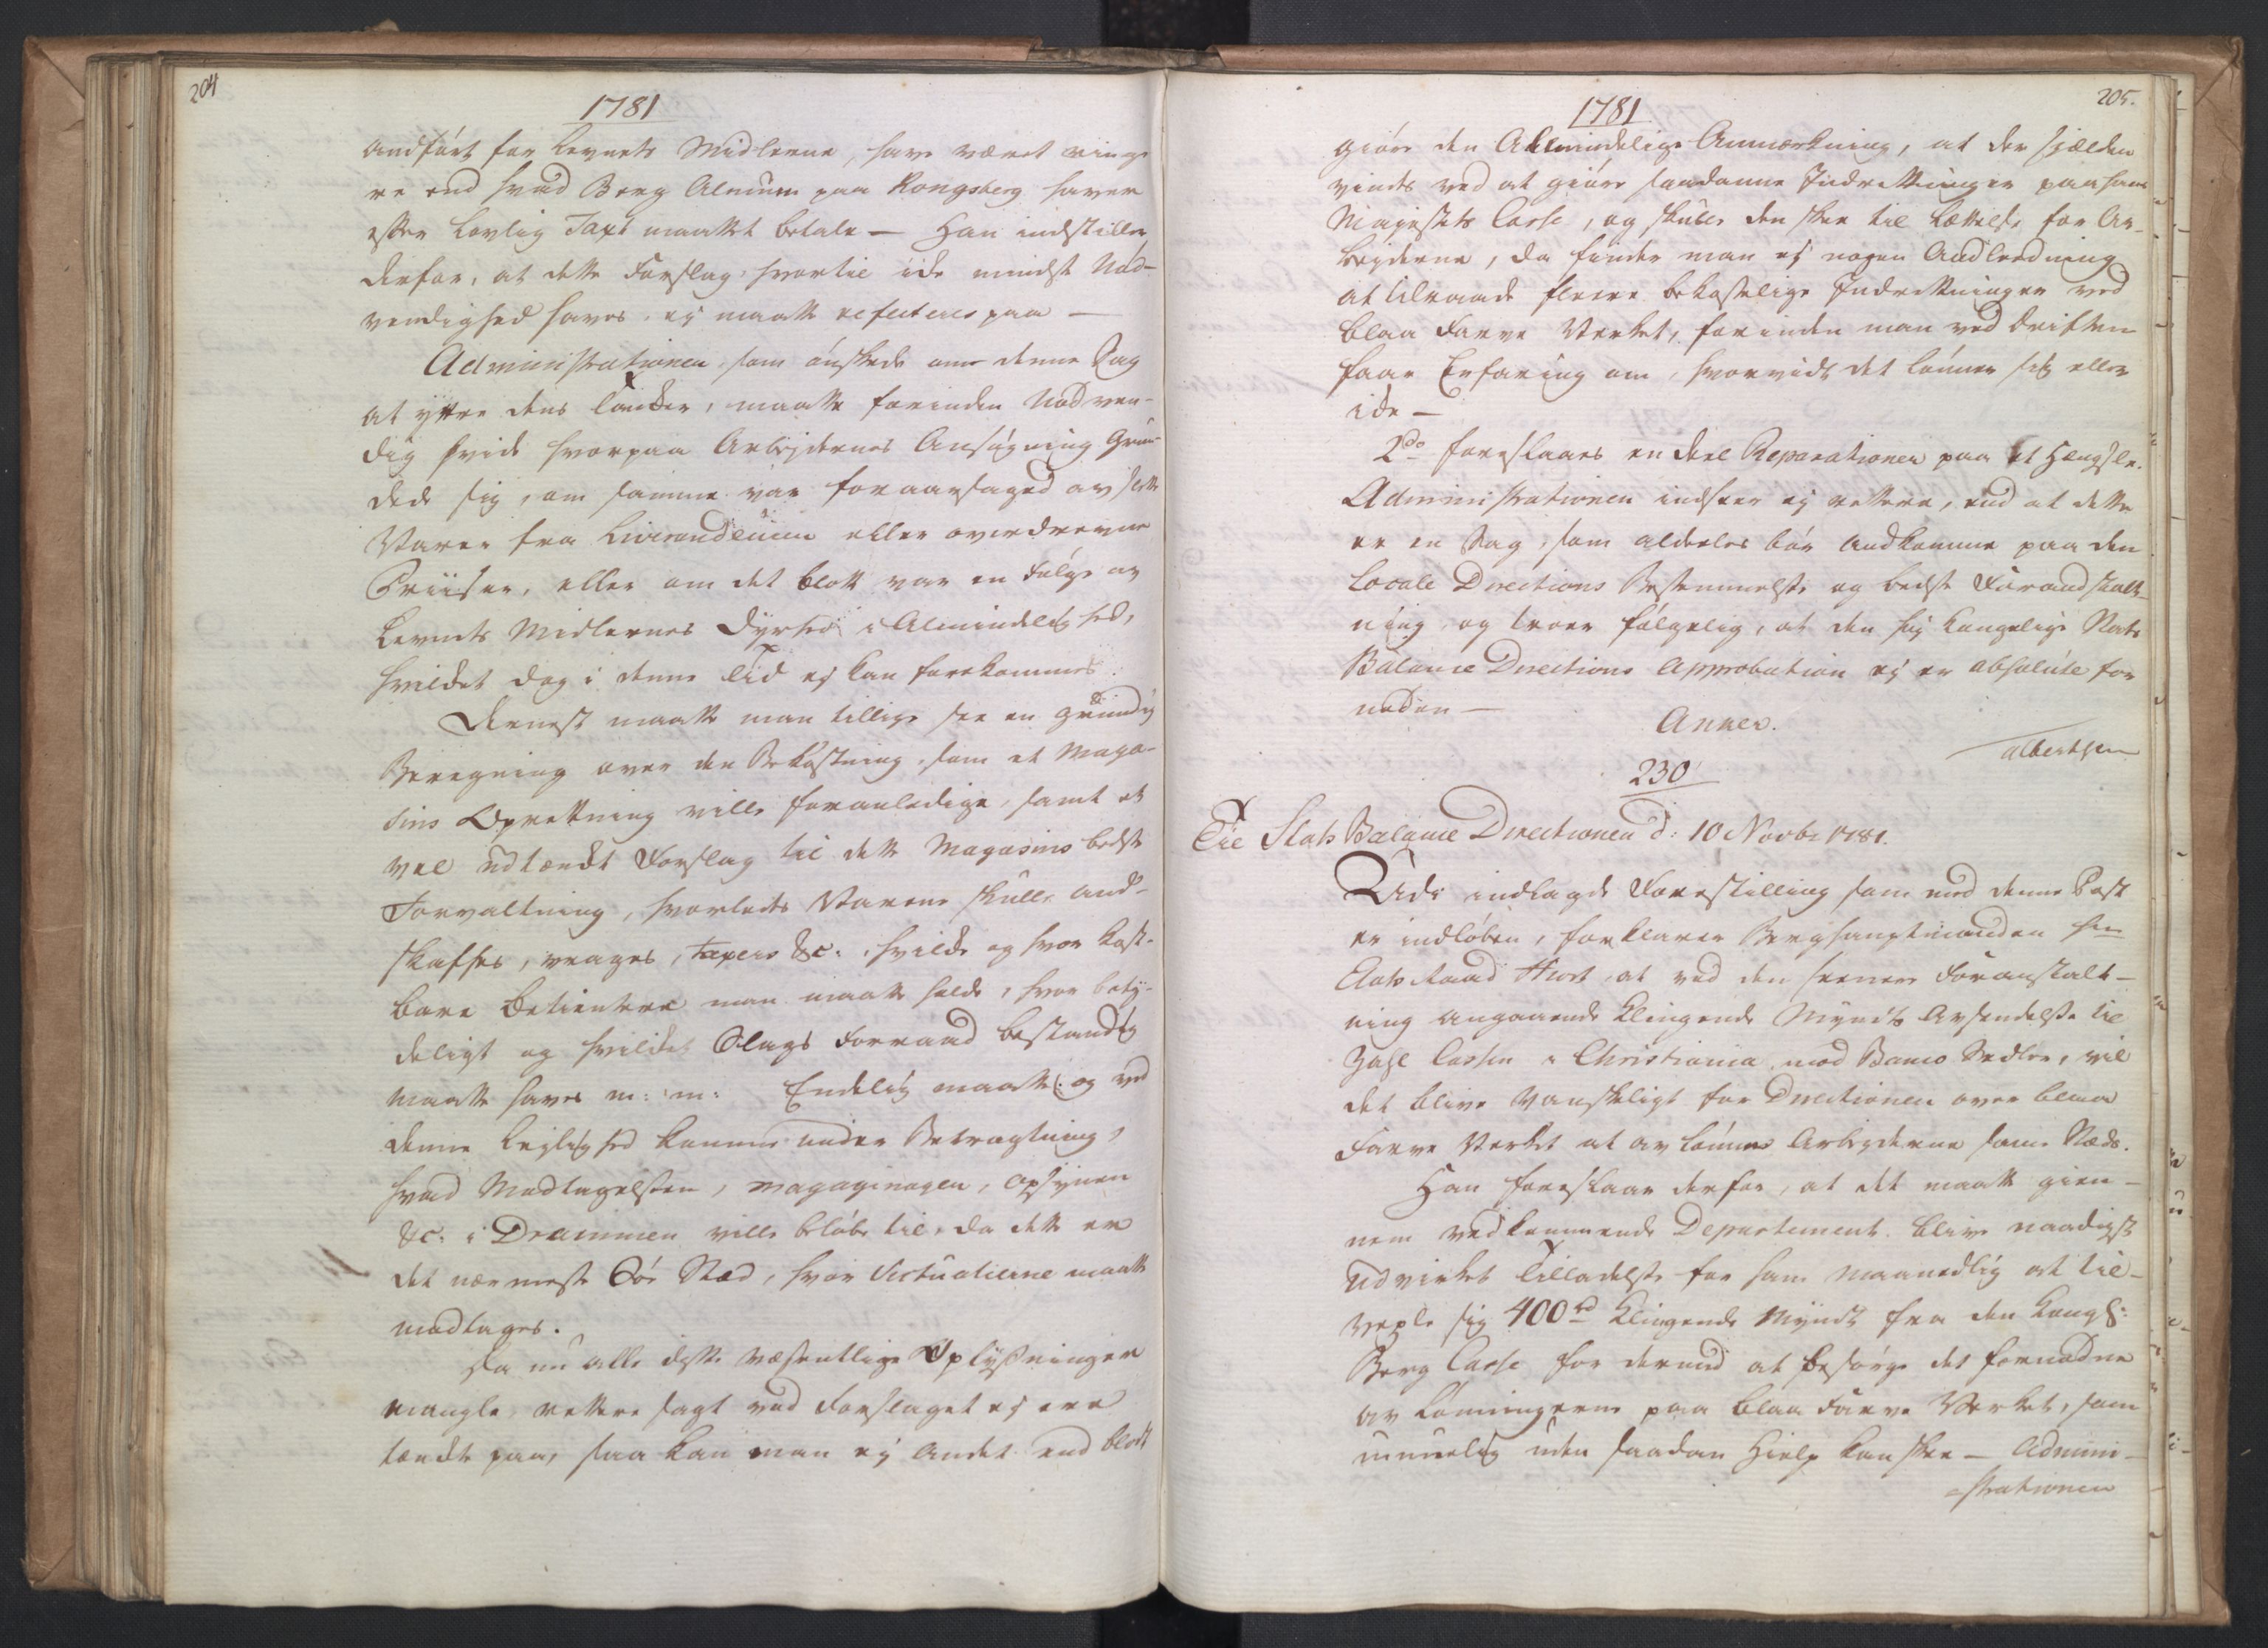 204
1781
andført for Levnets Midlerne, have været ringe-
re end hvad Berg Almuen paa Kongsberg haver
efter lovlig Taxt maattet betale — Han indstiller
derfor, at dette Forslag, hvortil icke mindste Nød-
vendighed haves, ej maatte reflecteres paa —
Administrationen, som ønskede om denne Sag
at yttre dens Tancker, maatte forinden Nødven-
dig vide hvorpaa Arbejdernes Ansøgning Grun-
dede sig, om samme var foraarsaged av slette
Varer fra Liverandeurer eller overdrevne
Priiser, eller om det blott var en Følge av
Levnets Midlernes Dyrhed i Almindelighed,
hvilcket dog i denne Tid ej kan forekommes.
Dernest maatte man tillige see en grundig
Beregning over den Bekostning, som et Maga-
sins Oprettning ville foranledige, samt et
vel udtænckt Forslag til dette Magasins bedste
Forvaltning, hvorledes Varerne skulle and-
skaffes, vrages, taxeres &c: hvilcke og hvor kost-
bare Betientere man maatte holde, hvor bety-
deligt og hvilcket Slags Forraad bestandig
maatte haves m: m: Endelig maatte og ved
denne Lejlighed komme under Betragtning,
hvad Modtagelsen, magaginagen, opsynen
&c: i Drammen ville beløbe til, da dette er
det nærmeste Søe Stæd, hvor Victualierne maatte
modtages.
Da nu alle disse væsentlige Oplysninger
mangle, rettere sagt ved Forslaget ej ere
tænckt paa, saa kan man ej andet end blott
205.
1781
giøre den Allmindelige Anmærkning, at der sielden
vindes ved at giøre saadanne Indrettninger paa hans
Majestets Casse, og skulle den skee til Lættelse for Ar-
bejderne, da finder man ej nogen Andledning
at tilraade fleere bekostelige Indrettninger ved
blaa Farve Verket, forinden man ved Driften
faar Erfaring om, hvorvidt det lønner sig eller
icke —
2do foreslaaes en deel Reparationer paa et Hengsle.
Administrationen indseer ej rettere, end at dette
er en Sag, som aldeeles bør andkomme paa den
Locale Directions Bestemmelse og bedste Forandstalt-
ning, og troer følgelig, at den høj Kongelige Stats
Balance Directions Approbation ej er absolute for
nøden —
Ancker.
Albertsen
230
Til Stats Balance Directionen d: 10 Novbr 1781.
Udi indlagde Forestilling som med denne Post
er indløben, forklarer Berghauptmanden Hr
Etats Raad Hiort, at ved den seenere Foranstalt-
ning angaaende klingende Mynts Avsendelse til
Zahl Cassen i Christiania mod Banco Sedler, vil
det blive Vanskeligt for Directionen over blaa
Farve Verket at avlønne Arbejderne samme Stæds.
Han foreslaar derfor, at det maatte gien-
nem vedkommende Departement blive naadigst
udvircket Tilladelse for ham maanedlig at til-
vexle sig 400 rd klingende Mynt fra den Kongl:
Berg Casse for dermed at besørge det fornødne
av Lønningerne paa blaa Farve Verket, som
umuelig uden saadan Hielp kan skee — Admini-
=strationen